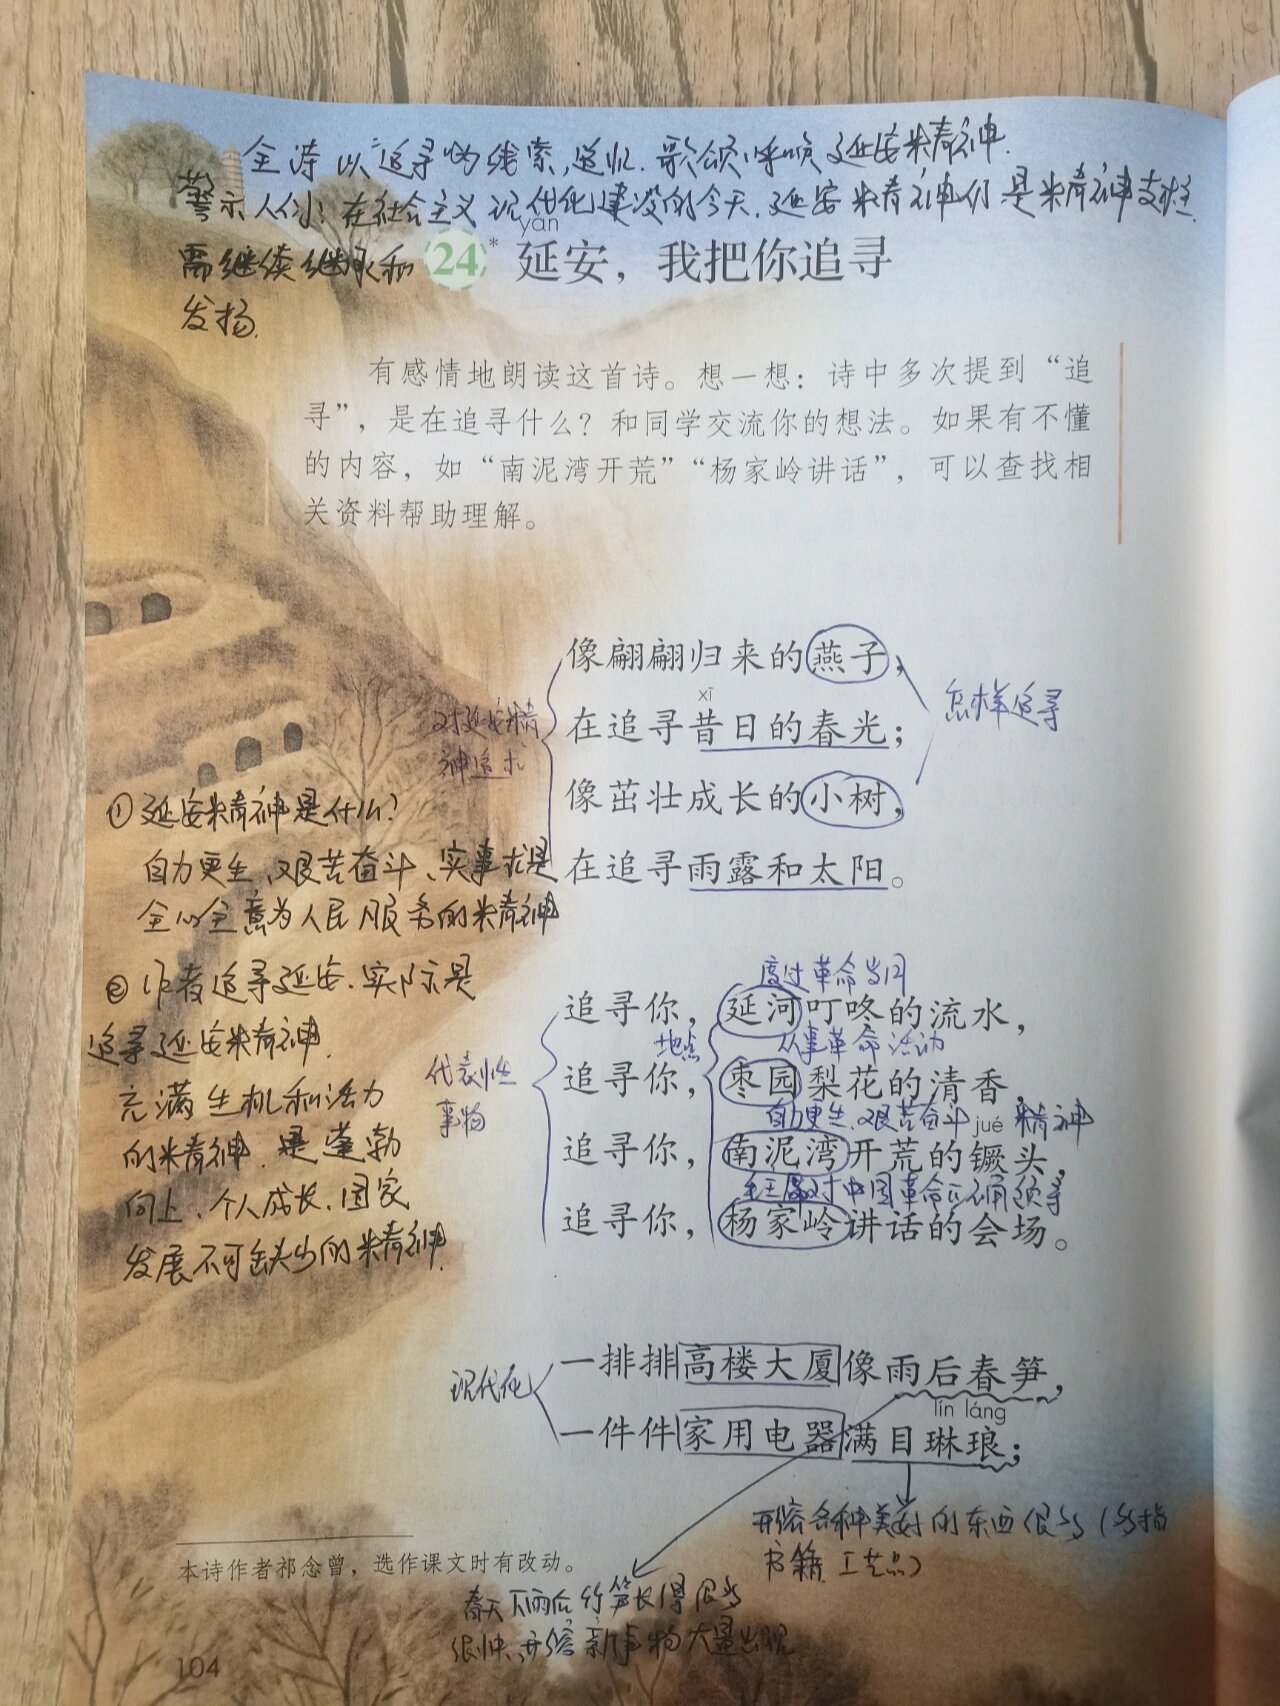 全诗以"追寻"为线索,追忆.歌颂.呼唤延安精神.
警示人们:在社会主义现代化建设的今天.延安精神仍是精神支柱
需继续继承和
发扬.
yán
24* 延安，我把你追寻
有感情地朗读这首诗。想一想：诗中多次提到“追
寻”，是在追寻什么？和同学交流你的想法。如果有不懂
的内容，如“南泥湾开荒”“杨家岭讲话”，可以查找相
关资料帮助理解。
像翩翩归来的燕子，
xī
在追寻昔日的春光；
像茁壮成长的小树，
在追寻雨露和太阳。
怎样追寻
对延安精
神追求
①延安精神是什么?
自力更生、艰苦奋斗、实事求是
全心全意为人民服务的精神
②作者追寻延安.实际是
追寻延安精神.
充满生机和活力
的精神.是蓬勃
向上.个人成长.国家
发展不可缺少的精神.
代表性
事物
地点
度过革命岁月
追寻你，延河叮咚的流水，
从事革命活动
追寻你，枣园梨花的清香，
自力更生、艰苦奋斗 精神
jué
追寻你，南泥湾开荒的镢头，
毛主席对中国革命正确领导
追寻你，杨家岭讲话的会场。
现代化
一排排高楼大厦像雨后春笋，
lín láng
一件件家用电器满目琳琅；
形容各种美好的东西很多(多指
书籍.工艺品)
本诗作者祁念曾，选作课文时有改动。
春天下雨后竹笋长得很多
很快,形容新事物大量出现
104